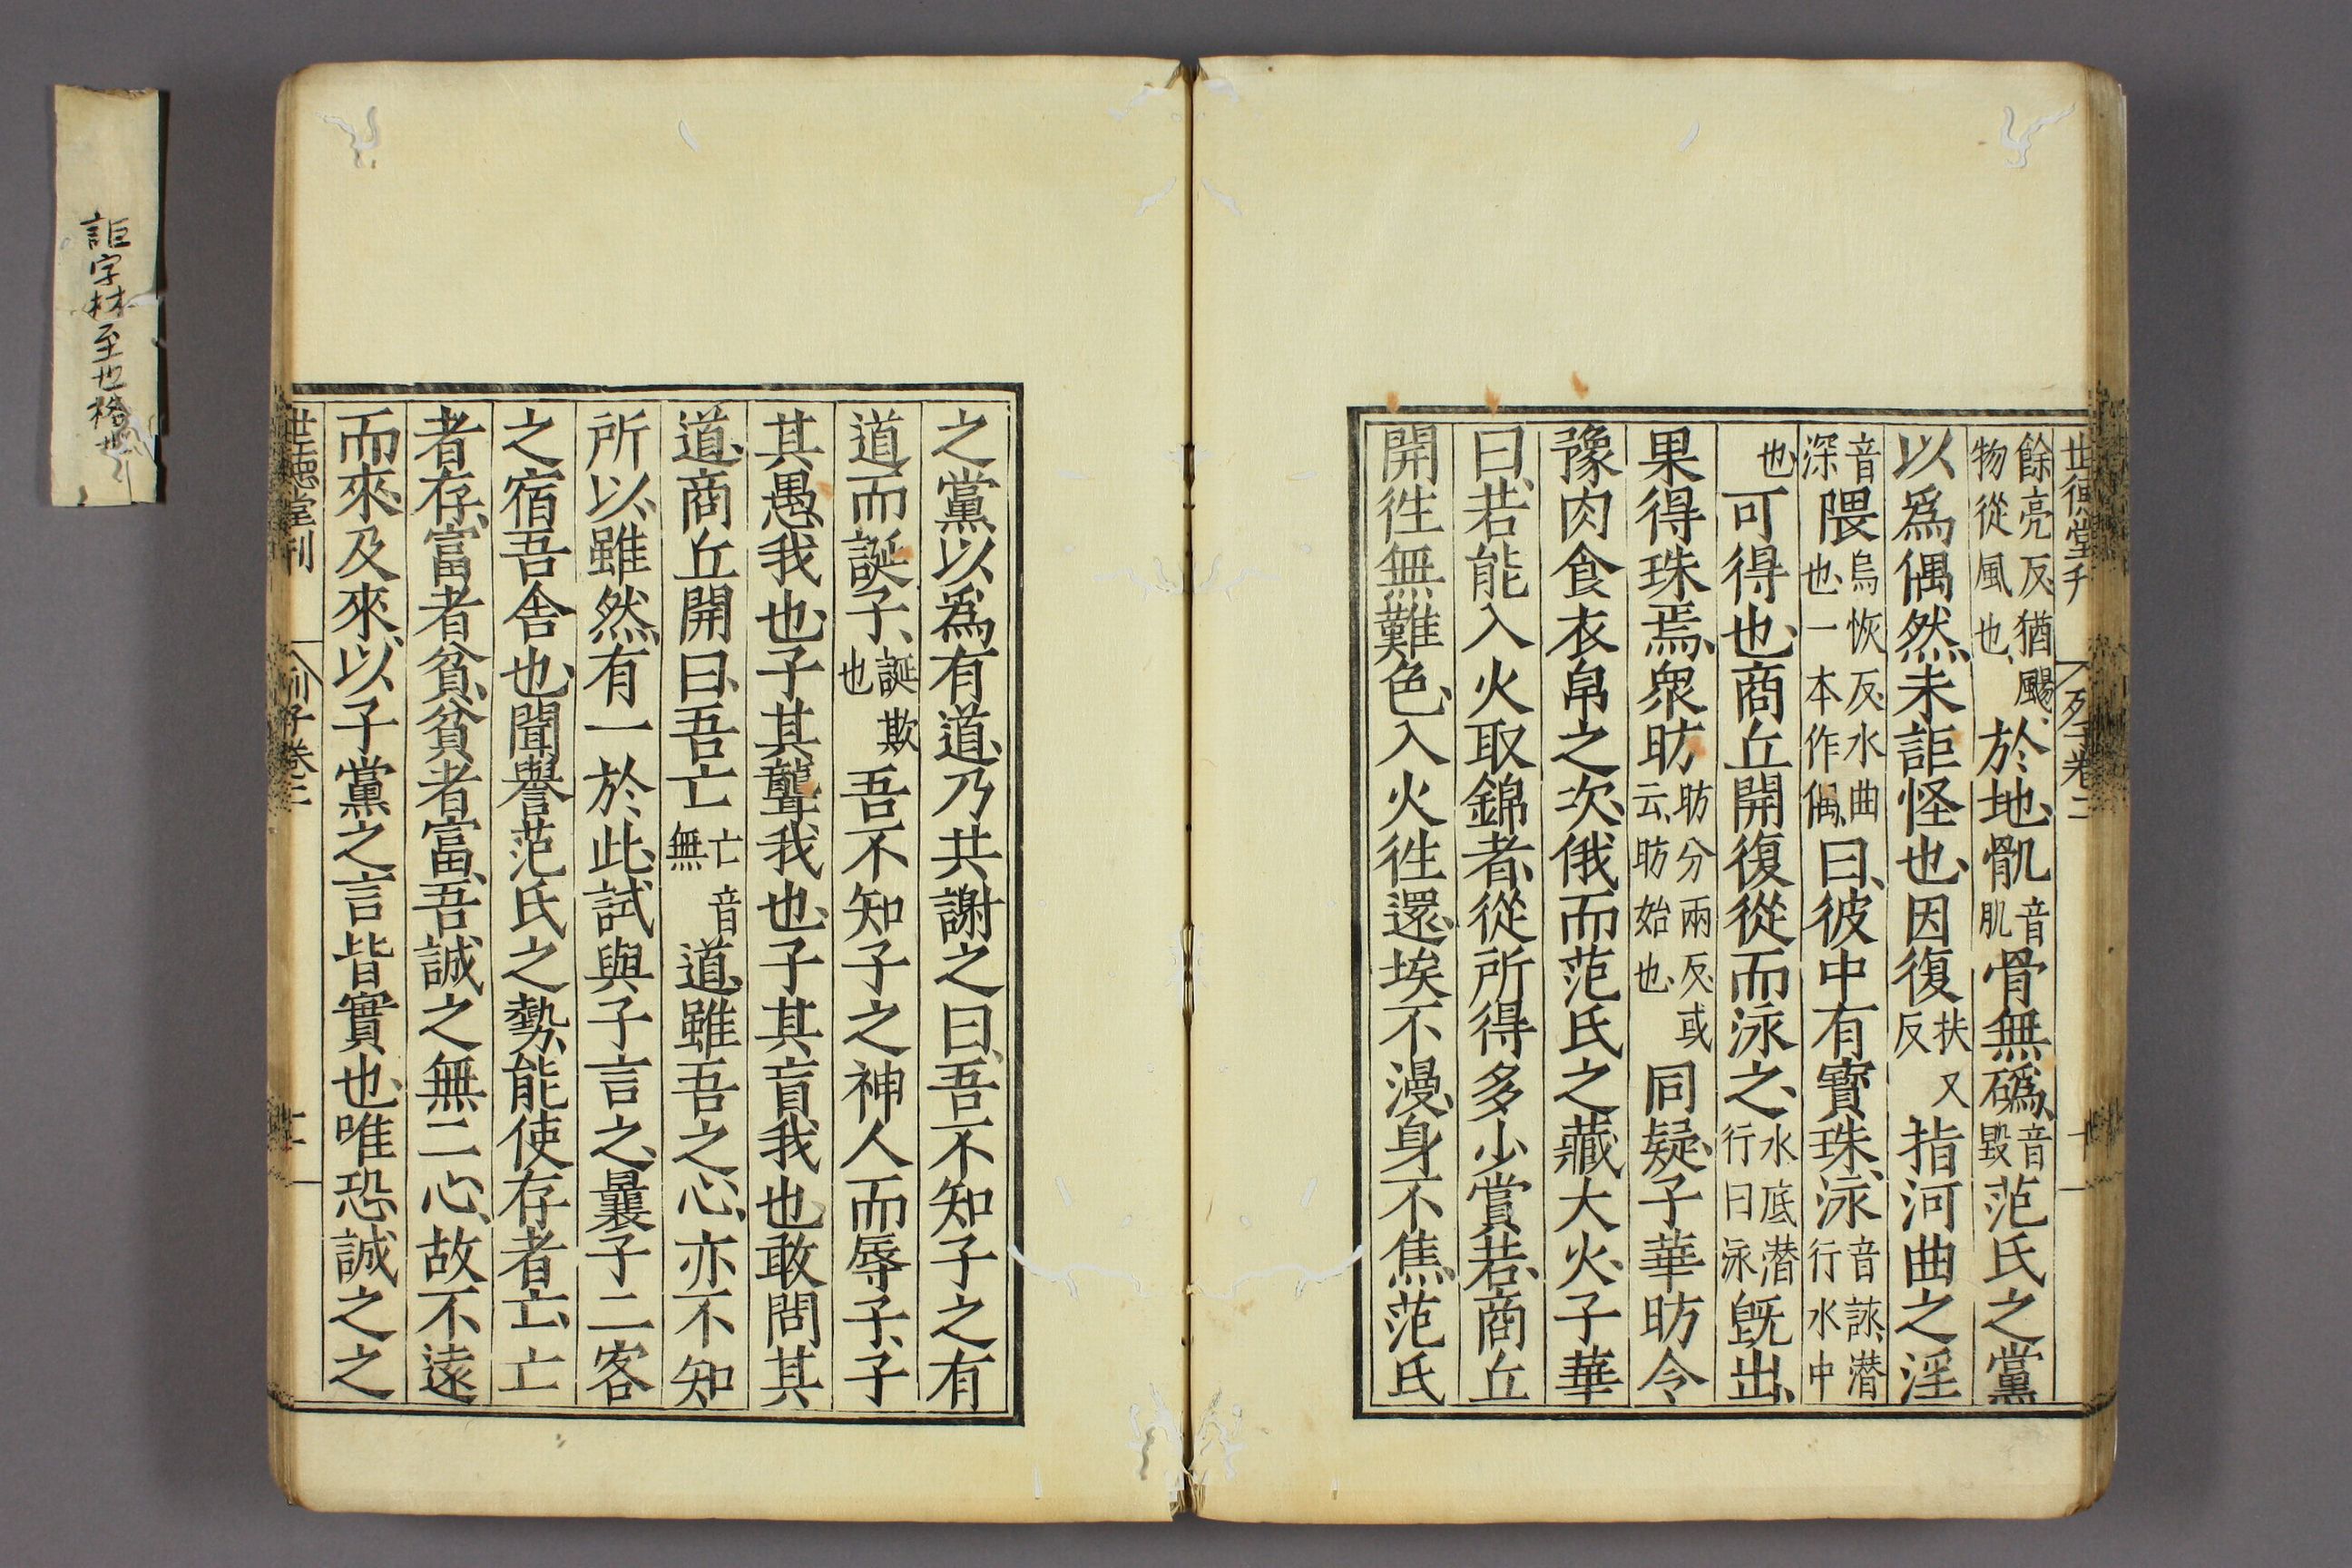 世德堂刊 列子卷二 十
餘亮反猶颺物從風也、於地、骪音肌骨無䃣、音毀范氏之黨
以爲偶然、未詎怪也、因復扶又反指河曲之淫
音深隈烏恢反水曲也、一本作偶、曰、彼中有寶珠、泳音詠、潛行水中
也、可得也、商丘開復從而泳之、水底潛行曰泳旣出、
果得珠焉、衆昉昉分兩反或云、昉始也、同疑、子華昉令
豫肉食衣帛之次、俄而范氏之藏大火、子華
曰、若能入火取錦者、從所得多少賞若、商丘
開徃無難色、入火徃還、埃不漫、身不焦、范氏
之黨以爲有道、乃共謝之曰、吾不知子之有
道而誕子、誕欺也吾不知子之神人而辱子、子
其愚我也、子其聾我也、子其盲我也、敢問其
道、商丘開曰、吾亡亡音無道、雖吾之心、亦不知
所以、雖然、有一於此、試與子言之、曩子二客
之宿吾舍也、聞譽范氏之勢、能使存者亡、亡
者存、富者貧、貧者富、吾誠之無二心、故不遠
而來、及來、以子黨之言皆實也、唯恐誠之之
世德堂刊 列子卷二 十一
詎字林至也格也